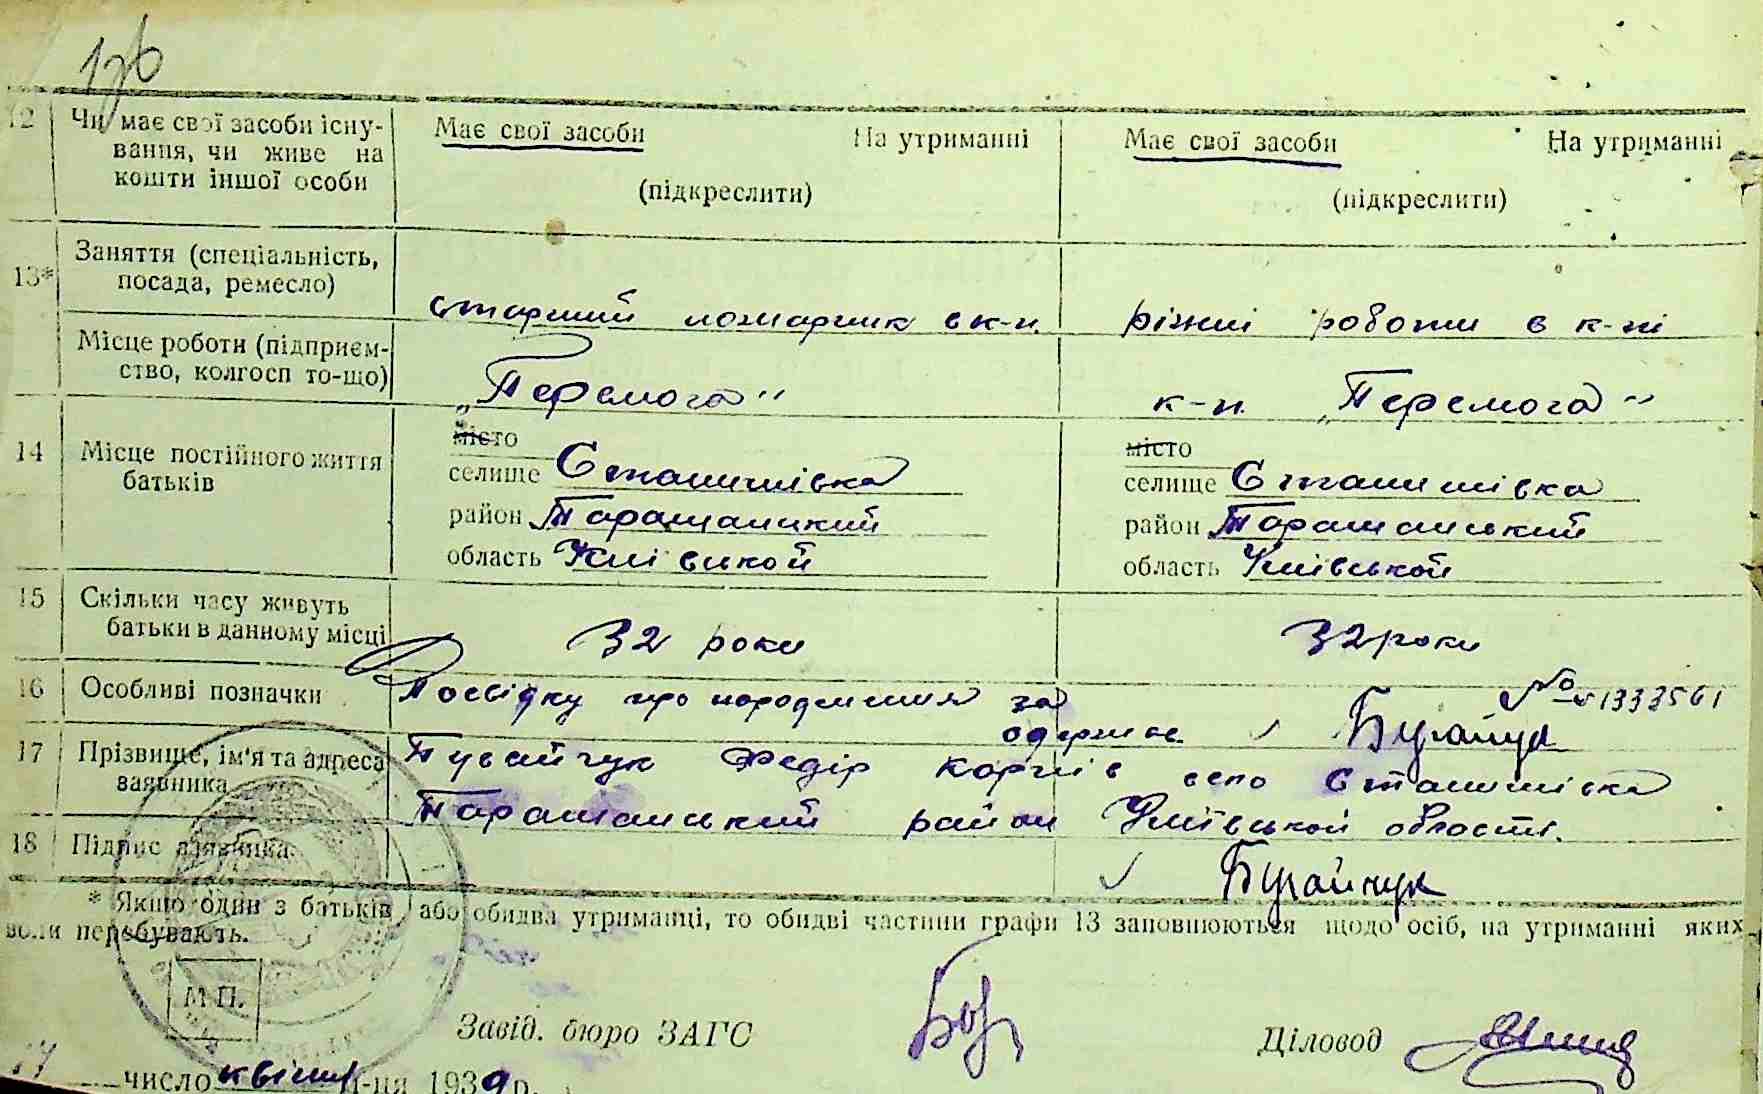 12 Чи має свої засоби існу- Має свої засоби На утриманні Має свої засоби На утриманні
вання, чи живе на
кошти іншої особи (підкреслити) (підкреслити)
13* Заняття (спеціальність,
посада, ремесло)
старший пожарник в к-п. ріжні роботи в к-пі
Місце роботи (підприєм-
ство, колгосп то-що) „Перемога" к-п. „Перемога"
14 Місце постійного життя
батьків
місто місто
селище Станишівка селище Станишівка
район Таращанський район Таращанський
область Київської область Київської
15 Скільки часу живуть
батьки в данному місці 32 роки 32 роки
16 Особливі позначки Посвідку про народження за № 1333561
одержав Бугайчук
17 Прізвище, ім'я та адреса
заявника
Бугайчук Федір Корнів село Станишівка
Таращанський район Київської області.
18 Підпис заявника Бугайчук
* Якщо один з батьків, або обидва утриманці, то обидві частини графи 13 заповнюються щодо осіб, на утриманні яких
вони перебувають.
М.П.
Завід. бюро ЗАГС Діловод
17 число квітня м-ця 1939 р.